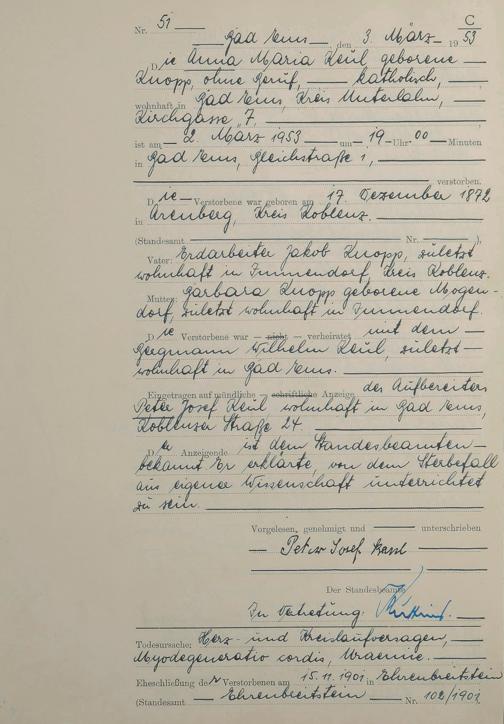 C
Nr. 51
Bad Ems, den 3. März 1953
Die Anna Maria Keul geborene
Knopp, ohne Beruf, katholisch,
wohnhaft in Bad Ems, Kreis Unterlahn,
Kirchgasse 7,
ist am 2. März 1953 um 19 Uhr 00 Minuten
in Bad Ems, Bleichstraße 1,
verstorben.
Die Verstorbene war geboren am 17. Dezember 1872
in Arenberg, Kreis Koblenz.
(Standesamt Nr. ),
Vater: Erdarbeiter Jakob Knopp, zuletzt
wohnhaft in Immendorf, Kreis Koblenz.
Mutter: Barbara Knopp geborene Mogen-
dorf, zuletzt wohnhaft in Immendorf.
Die Verstorbene war – nicht – verheiratet mit dem
Bergmann Wilhelm Keul, zuletzt
wohnhaft in Bad Ems.
Eingetragen auf mündliche – schriftliche Anzeige des Aufbereiters
Peter Josef Keul wohnhaft in Bad Ems,
Koblenzer Straße 24.
Der Anzeigende ist dem Standesbeamten
bekannt Er erklärte, von dem Sterbefall
aus eigener Wissenschaft unterrichtet
zu sein.
Vorgelesen, genehmigt und unterschrieben
Peter Josef Keul
Der Standesbeamte
In Vertretung:
Todesursache: Herz- und Kreislaufversagen,
Myodegeneratio cordis, Uraemie.
Eheschließung der Verstorbenen am 15.11.1901 in Ehrenbreitstein
(Standesamt Ehrenbreitstein Nr. 102/1901